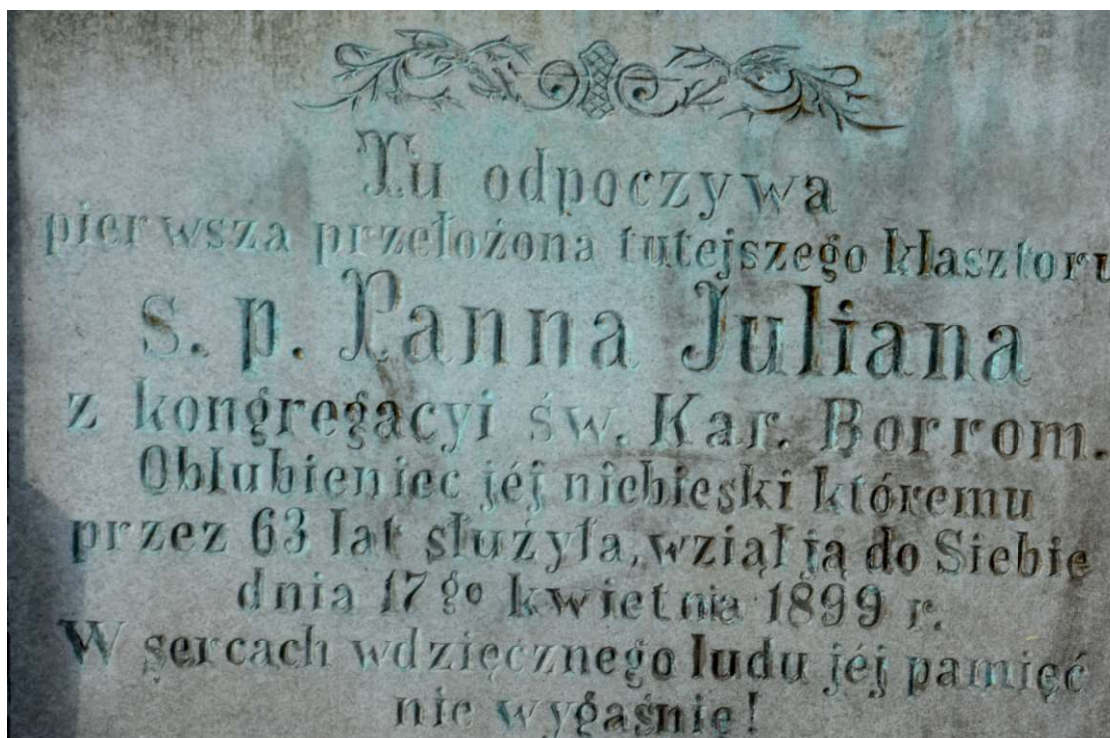 Tu odpoczywa
pierwsza przełożona tutejszego klasztoru
s. p. Panna Juliana
z kongregacyi św. Kar. Borrom.
Oblubieniec jéj niebieski któremu
przez 63 lat służyła, wziął ją do Siebie
dnia 17go kwietnia 1899 r.
W sercach wdzięcznego ludu jéj pamięć
nie wygaśnie!